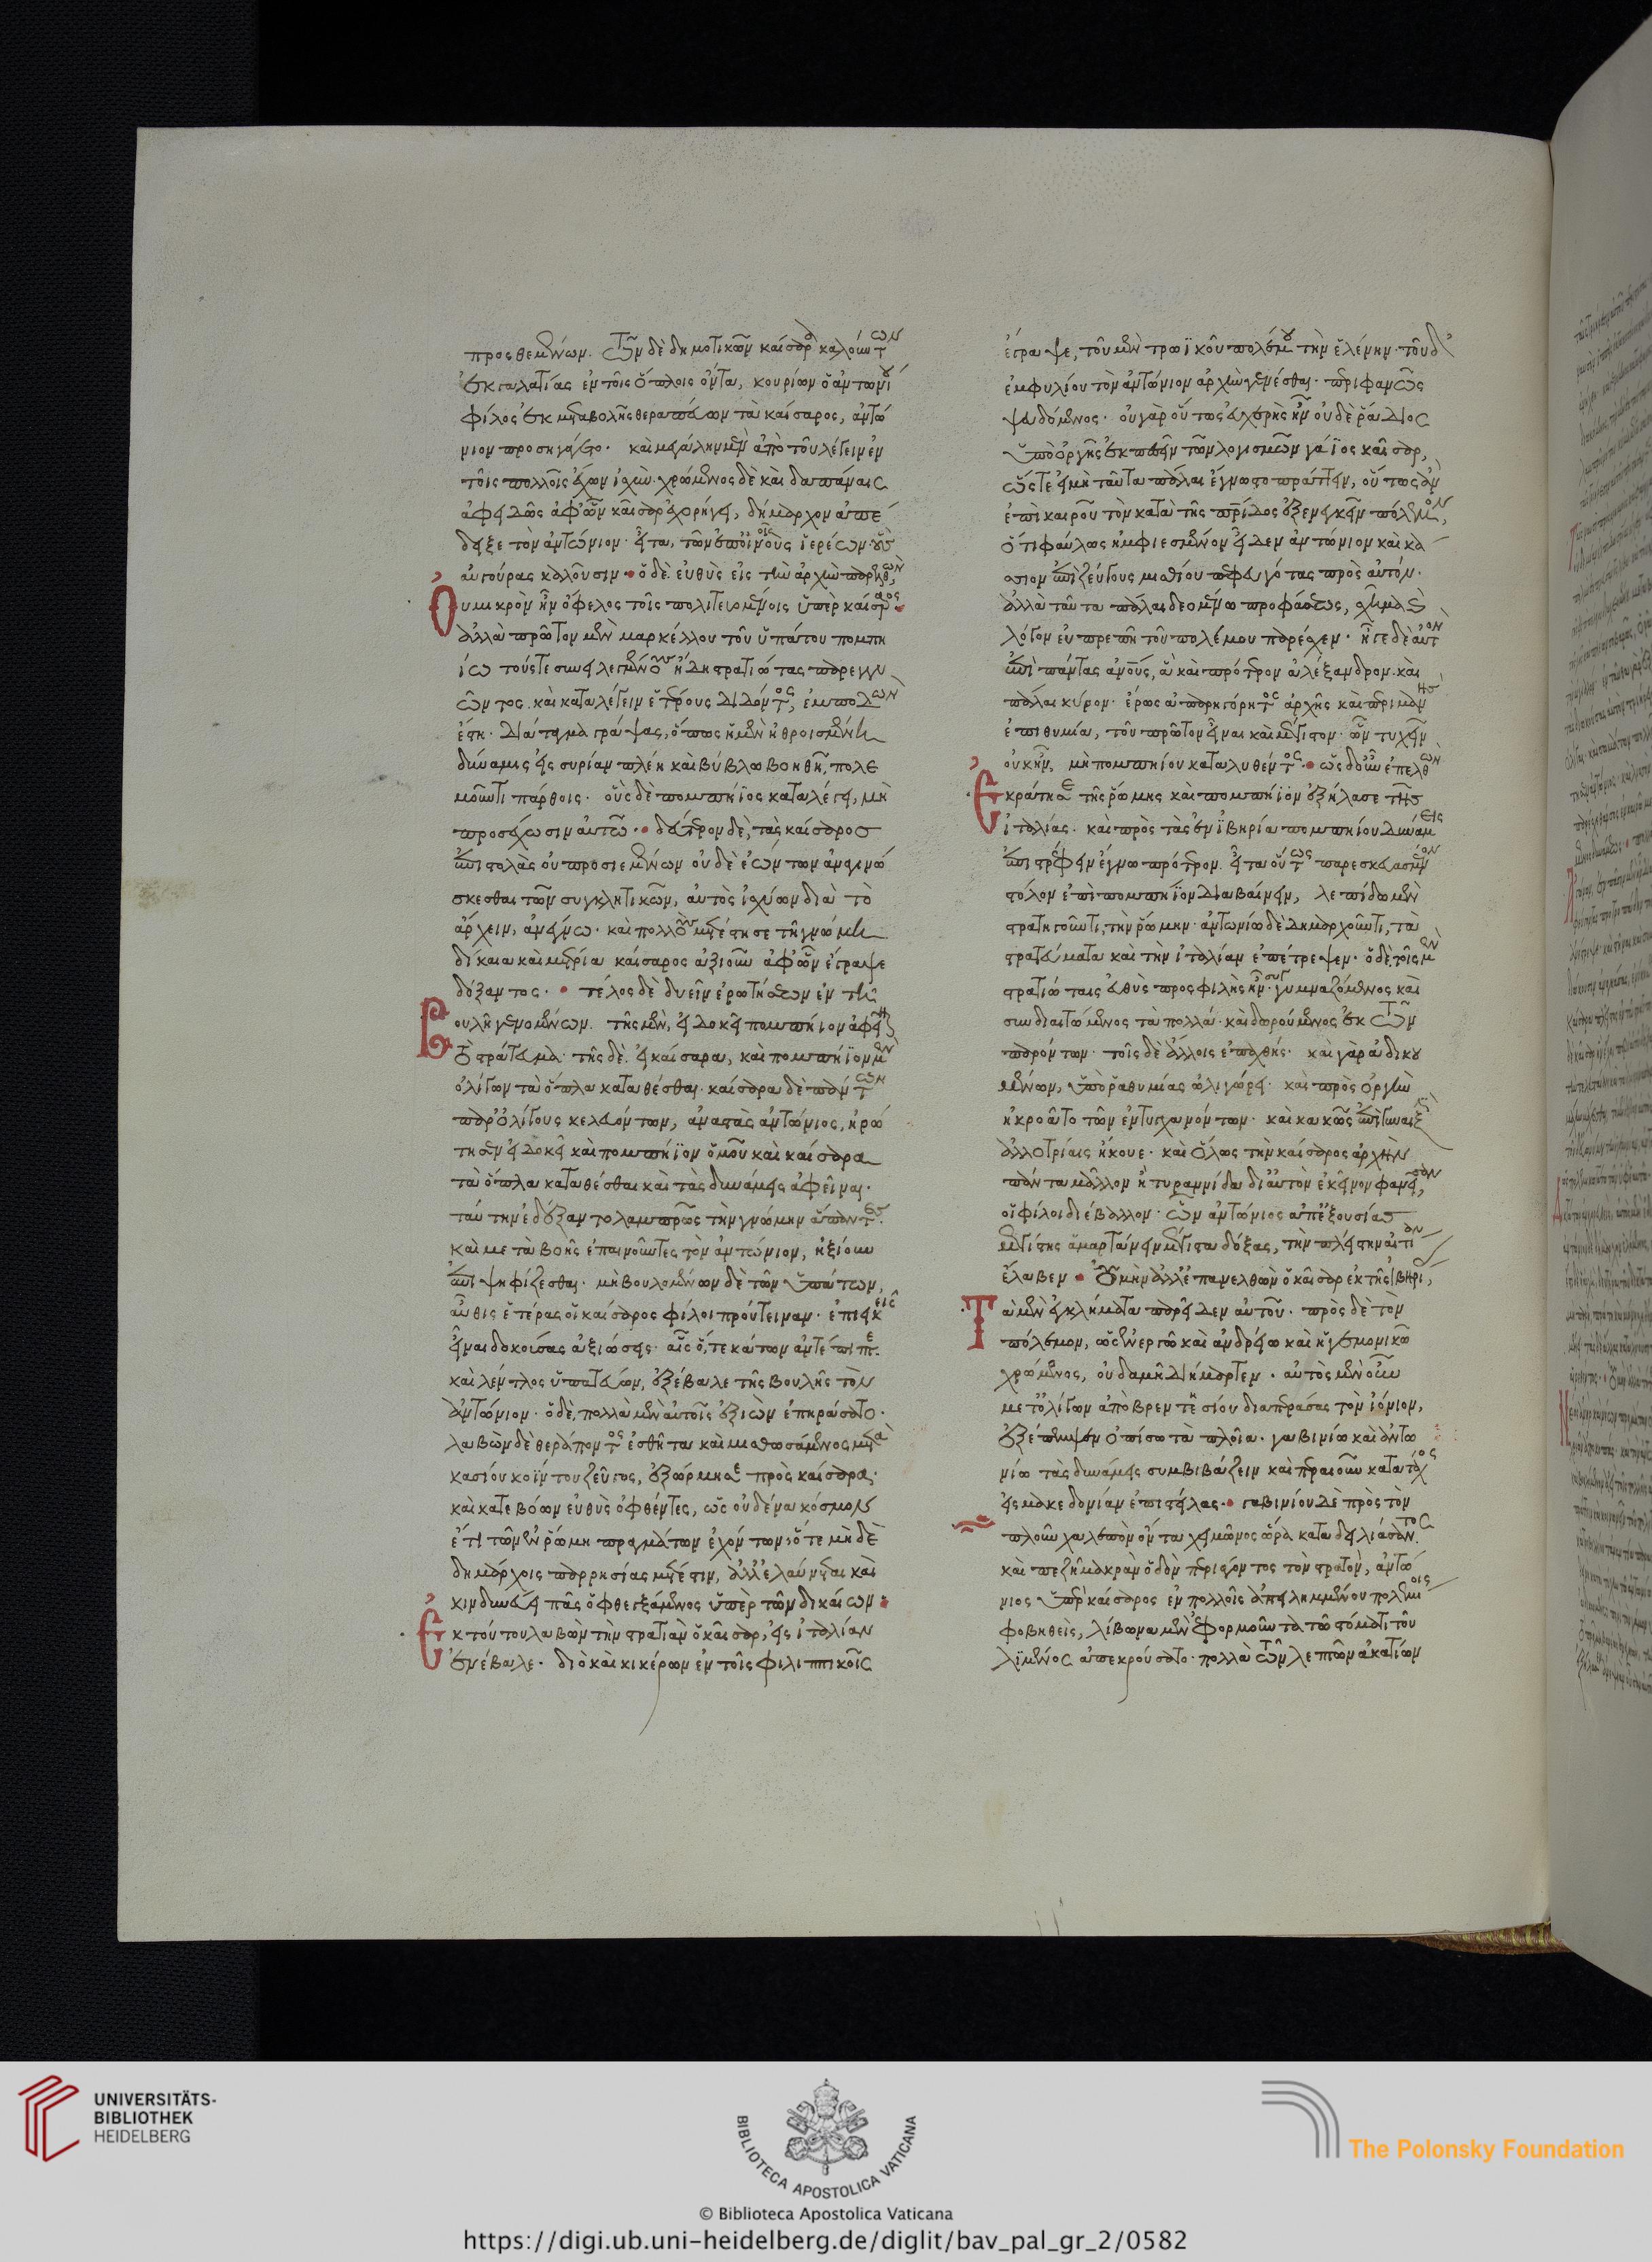 προσθεμένων. τῶν δὲ δημοτικῶν καίσαρα καλούντων
ἐκ γαλατίας ἐν τοῖς ὅπλοις ὄντα, κουρίων ὁ ἀντωνίου
φίλος ἐκ μεταβολῆς θεραπεύων τὰ καίσαρος, ἀντώ
νιον προσηγάγετο. καὶ μεγάλην μὲν ἀπὸ τοῦ λέγειν ἐν
τοῖς πολλοῖς ἔχων ἰσχὺν. χρώμενος δὲ καὶ δαπάναις
ἀφειδῶς ἀφ' ὧν καῖσαρ ἐχορήγει, δήμαρχον ἀπέ
δειξε τὸν ἀντώνιον. εἶτα, τῶν ἐπ' οἰωνοῖς ἱερέων. οὓς
αὐγούρας καλοῦσιν. ὁ δὲ εὐθὺς εἰς τὴν ἀρχὴν παρελθὼν,
Οὐ μικρὸν ἦν ὄφελος τοῖς πολιτευομένοις ὑπὲρ καίσαρος.
ἀλλὰ πρῶτον μὲν μαρκέλλου τοῦ ὑπάτου πομπη
ίω τούς τε συνειλεγμένους ἤδη στρατιώτας παρεγγυ
ῶντος. καὶ καταλέγειν ἑτέρους διδόντος, ἐμποδὼν
ἔστη. διάταγμα γράψας, ὅπως ἡ μὲν ἠθροισμένη
δύναμις εἰς συρίαν πλέη καὶ βύβλω βοηθῆ, πολε
μοῦντι πάρθοις. οὓς δὲ πομπήϊος καταλέγει, μὴ
προσέχωσιν αὐτῶ. δεύτερον δὲ, τὰς καίσαρος
ἐπιστολὰς οὐ προσιεμένων οὐδὲ ἐώντων ἀναγινώ
σκεσθαι τῶν συγκλητικῶν, αὐτὸς ἰσχύων διὰ τὸ
ἄρχειν, ἀνέγνω. καὶ πολλοὺς μετέστησε τῆ γνώμη
δίκαια καὶ μέτρια καίσαρος ἀξιοῦν ἀφ' ὧν ἔγραψε
δόξαντος. τέλος δὲ δυεῖν ἐρωτήσεων ἐν τῆ
Βουλῆ γενομένων. τῆς μὲν, εἰ δοκεῖ πομπήιον ἀφεῖναι
τὸ στράτευμα. τῆς δὲ. εἰ καίσαρα, καὶ πομπήϊον μὲν
ὀλίγων τὰ ὅπλα καταθέσθαι. καίσαρα δὲ πάντων
παρ' ὀλίγους κελευόντων, ἀναστὰς ἀντώνιος, ἠρώ
τησεν εἰ δοκεῖ καὶ πομπήϊον ὁμοῦ καὶ καίσαρα
τὰ ὅπλα καταθέσθαι καὶ τὰς δυνάμεις ἀφεῖναι.
ταύτην ἐδέξαντο λαμπρῶς τὴν γνώμην ἅπαντες.
καὶ μετὰ βοῆς ἐπαινοῦντες τὸν ἀντώνιον, ἠξίουν
ἐπιψηφίζεσθαι. μὴ βουλομένων δὲ τῶν ὑπάτων,
αὖθις ἑτέρας οἱ καίσαρος φίλοι προύτειναν. ἐπιεικεῖς
εἶναι δοκούσας ἀξιώσεις. αἷς ὅ, τε κάτων ἀντέπιπτε.
καὶ λέντλος ὑπατεύων, ἐξέβαλε τῆς βουλῆς τὸν
ἀντώνιον. ὁ δὲ, πολλὰ μὲν αὐτοῖς ἐξιὼν ἐπηράσατο.
λαβὼν δὲ θεράποντος ἐσθῆτα καὶ μισθωσάμενος μετὰ
κασίου κοΐντου ζεῦγος, ἐξώρμησε πρὸς καίσαρα.
καὶ κατεβόων εὐθὺς ὀφθέντες, ὡς οὐδένα κόσμον
ἔτι τῶν ἐν ῥώμη πραγμάτων ἐχόντων. ὅτε μηδὲ
δημάρχοις παρρησίας μέτεστιν, ἀλλ' ἐλαύνεται καὶ
κινδυνεύει πᾶς ὁ φθεγξάμενος ὑπὲρ τῶν δικαίων.
Ἐκ τούτου λαβὼν τὴν στρατιὰν ὁ καῖσαρ, εἰς ἰταλίαν
ἐνέβαλε. διὸ καὶ κικέρων ἐν τοῖς φιλιππικοῖς
ἔγραψε, τοῦ μὲν τρωϊκοῦ πολέμου τὴν ἑλένην. τοῦ δ'
ἐμφυλίου τὸν ἀντώνιον ἀρχὴν γενέσθαι. περιφανῶς
ψευδόμενος. οὐ γὰρ οὕτως εὐχερὴς ἦν οὐδὲ ῥάδιος
ὑπὸ ὀργῆς ἐκπεσεῖν τῶν λογισμῶν γάϊος καῖσαρ,
ὥστε εἰ μὴ ταῦτα πάλαι ἔγνωστο πράττειν, οὕτως ἂν
ἐπὶ καιροῦ τὸν κατὰ τῆς πατρίδος ἐξενεγκεῖν πόλεμον,
ὅτι φαύλως ἠμφιεσμένον εἶδεν ἀντώνιον καὶ κά
σσιον ἐπὶ ζεύγους μισθίου πεφευγότας πρὸς αὐτόν.
ἀλλὰ ταῦτα πάλαι δεομένω προφάσεως, σχῆμα καὶ
λόγον εὐπρεπῆ τοῦ πολέμου παρέσχεν. ἦγε δὲ αὐτὸν
ἐπὶ πάντας ἀνθρώπους, ἃ καὶ πρότερον ἀλέξανδρον. καὶ
πάλαι κύρον. ἔρως ἀπαρηγόρητος ἀρχῆς καὶ περιμανὴς
ἐπιθυμία, τοῦ πρῶτον εἶναι καὶ μέγιστον. ὧν τυχεῖν
οὐκ ἦν, μὴ πομπηίου καταλυθέντος. ὡς δ' οὖν ἐπελθὼν
Ἐκράτησε τῆς ῥώμης καὶ πομπήϊον ἐξήλασε τῆς
ἰταλίας. καὶ πρὸς τὰς ἐν ἰβηρία πομπηίου δυνάμεις
ἐπιστρέφειν ἔγνω πρότερον. εἶτα οὕτως παρεσκευασμένον
στόλον ἐπὶ πομπήϊον διαβαίνειν, λεπίδω μὲν
στρατηγοῦντι, τὴν ῥώμην. ἀντωνίω δὲ δημαρχοῦντι, τὰ
στρατεύματα καὶ τὴν ἰταλίαν ἐπέτρεψεν. ὁ δὲ, τοῖς μὲν
στρατιώταις εὐθὺς προσφιλὴς ἦν. συγγυμναζόμενος καὶ
συνδιαιτώμενος τὰ πολλά. καὶ δωρούμενος ἐκ τῶν
παρόντων. τοῖς δὲ ἄλλοις ἐπαχθής. καὶ γὰρ ἀδικου
μένων, ὑπὸ ῥαθυμίας ὠλιγώρει. καὶ πρὸς ὀργὴν
ἠκροᾶτο τῶν ἐντυγχανόντων. καὶ κακῶς ἐπὶ γυναιξὶν
ἀλλοτρίαις ἤκουε. καὶ ὅλως τὴν καίσαρος ἀρχὴν
πάντα μᾶλλον ἢ τυραννίδα δι' αὐτὸν ἐκεῖνον φανεῖσαν,
οἱ φίλοι διέβαλλον. ὧν ἀντώνιος ἀπ' ἐξουσίας
μεγίστης ἁμαρτάνειν μέγιστα δόξας, τὴν πλείστην αἰτίαν
ἔλαβεν. οὐ μὴν ἀλλ' ἐπανελθὼν ὁ καῖσαρ ἐκ τῆς ἰβηρίας,
Τὰ μὲν ἐγκλήματα παρεῖδεν αὐτοῦ. πρὸς δὲ τὸν
πόλεμον, ὡς ἐνεργῶ καὶ ἀνδρείω καὶ ἡγεμονικῶ
χρώμενος, οὐδαμῆ διήμαρτεν. αὐτὸς μὲν οὖν
μετ' ὀλίγων ἀπὸ βρεντησίου διαπεράσας τὸν ἰόνιον,
ἐξέπεμψεν ὀπίσω τὰ πλοῖα. γαβινίω καὶ ἀντω
νίω τὰς δυνάμεις συμβιβάζειν καὶ περαιοῦν κατὰ τάχος
εἰς μακεδονίαν ἐπιστείλας. γαβινίου δὲ πρὸς τὸν
πλοῦν χαλεπὸν ὄντα χειμῶνος ὥρα καταδειλιάσαντος
καὶ πεζῆ μακρὰν ὁδὸν περιάγοντος τὸν στρατὸν, ἀντώ
νιος ὑπὲρ καίσαρος ἐν πολλοῖς ἀπειλημμένου πολεμίοις
φοβηθεὶς, λίβωνα μὲν ἐφορμοῦντα τῶ στόματι τοῦ
λιμένος ἀπεκρούσατο. πολλὰ τῶν λεπτῶν ἀκατίων
UNIVERSITÄTS-
BIBLIOTHEK
HEIDELBERG
BIBLIOTECA APOSTOLICA VATICANA
The Polonsky Foundation
© Biblioteca Apostolica Vaticana
https://digi.ub.uni-heidelberg.de/diglit/bav_pal_gr_2/0582